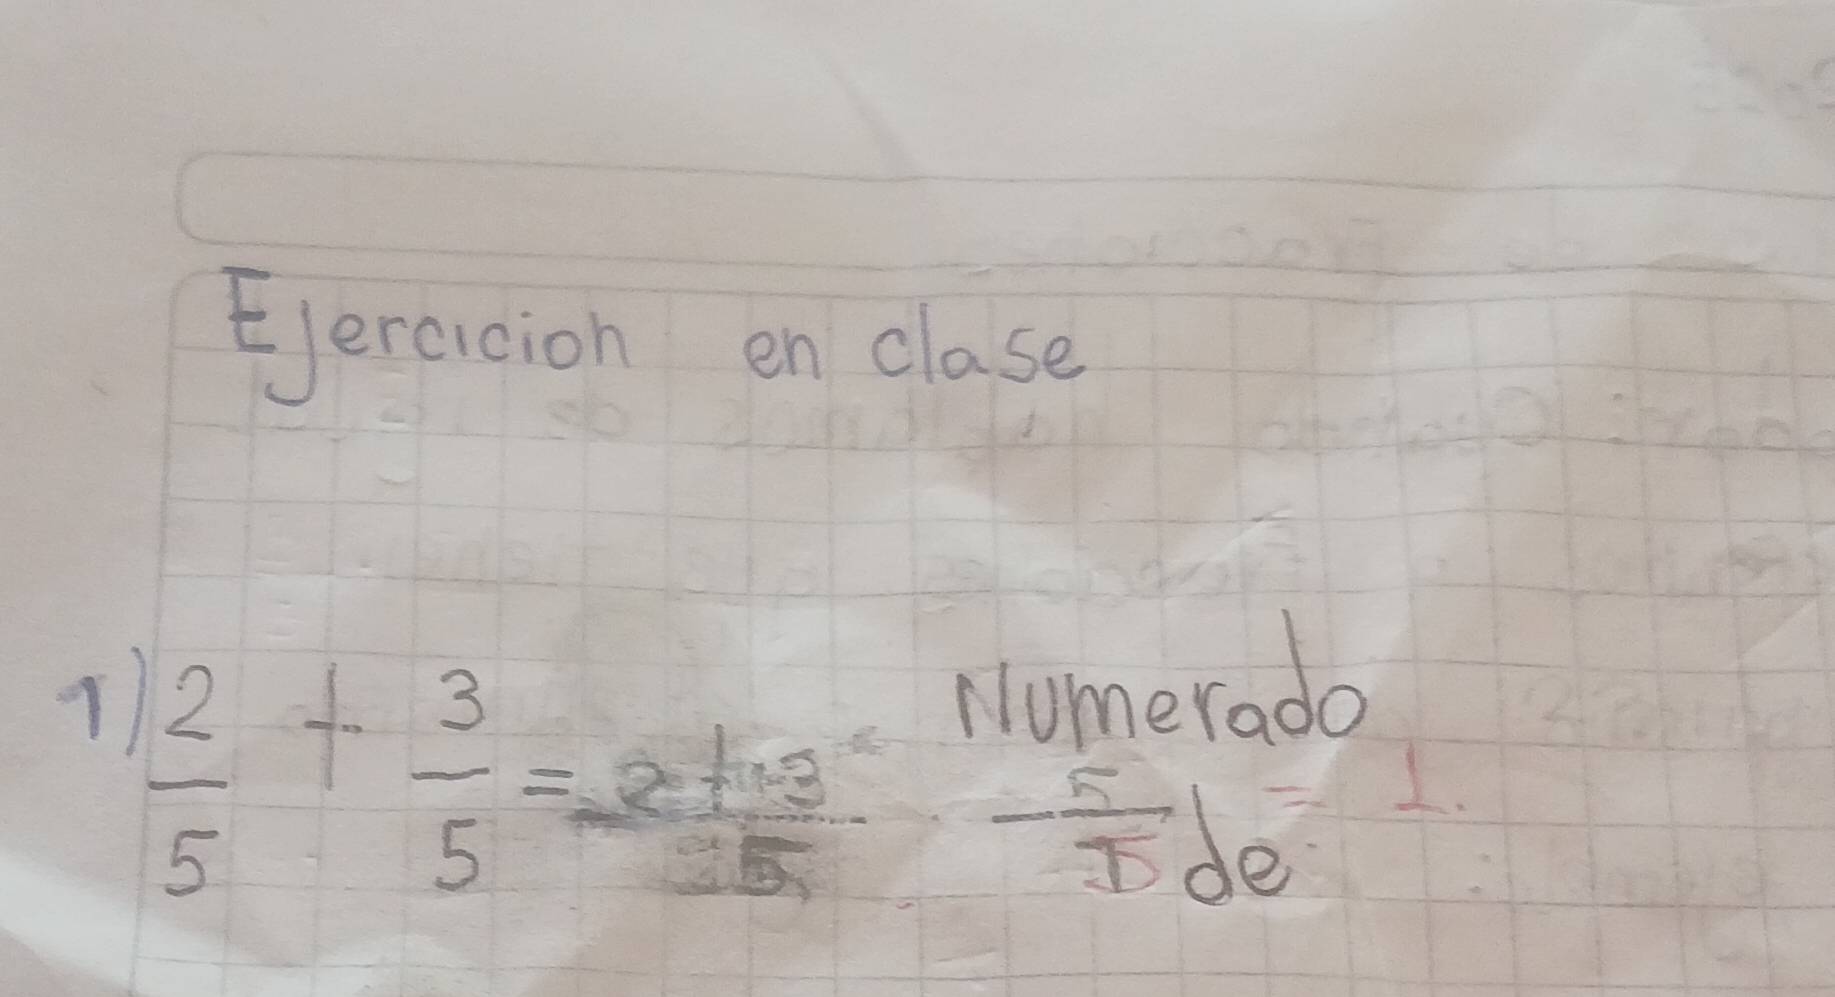 Ejercicion en clase
Numerado
1) 2/5 + 3/5 = 2+3/5 5/5 de = 1.